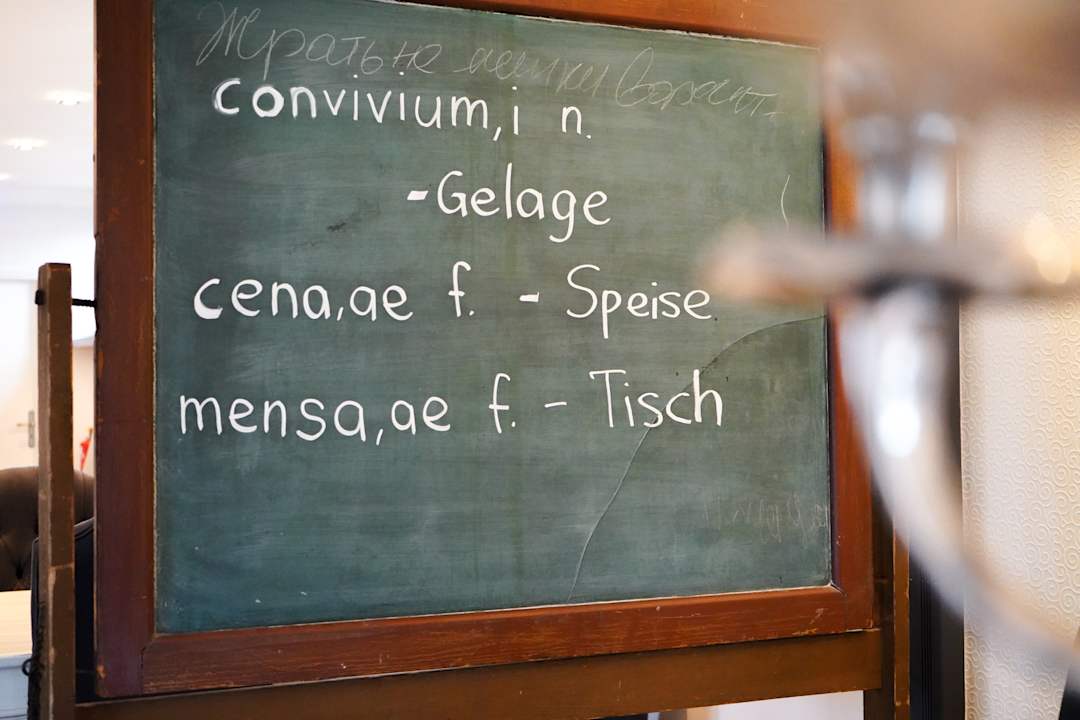 Жрать не мешки
convivium,i n.
-Gelage
cena,ae f. - Speise
mensa,ae f. - Tisch